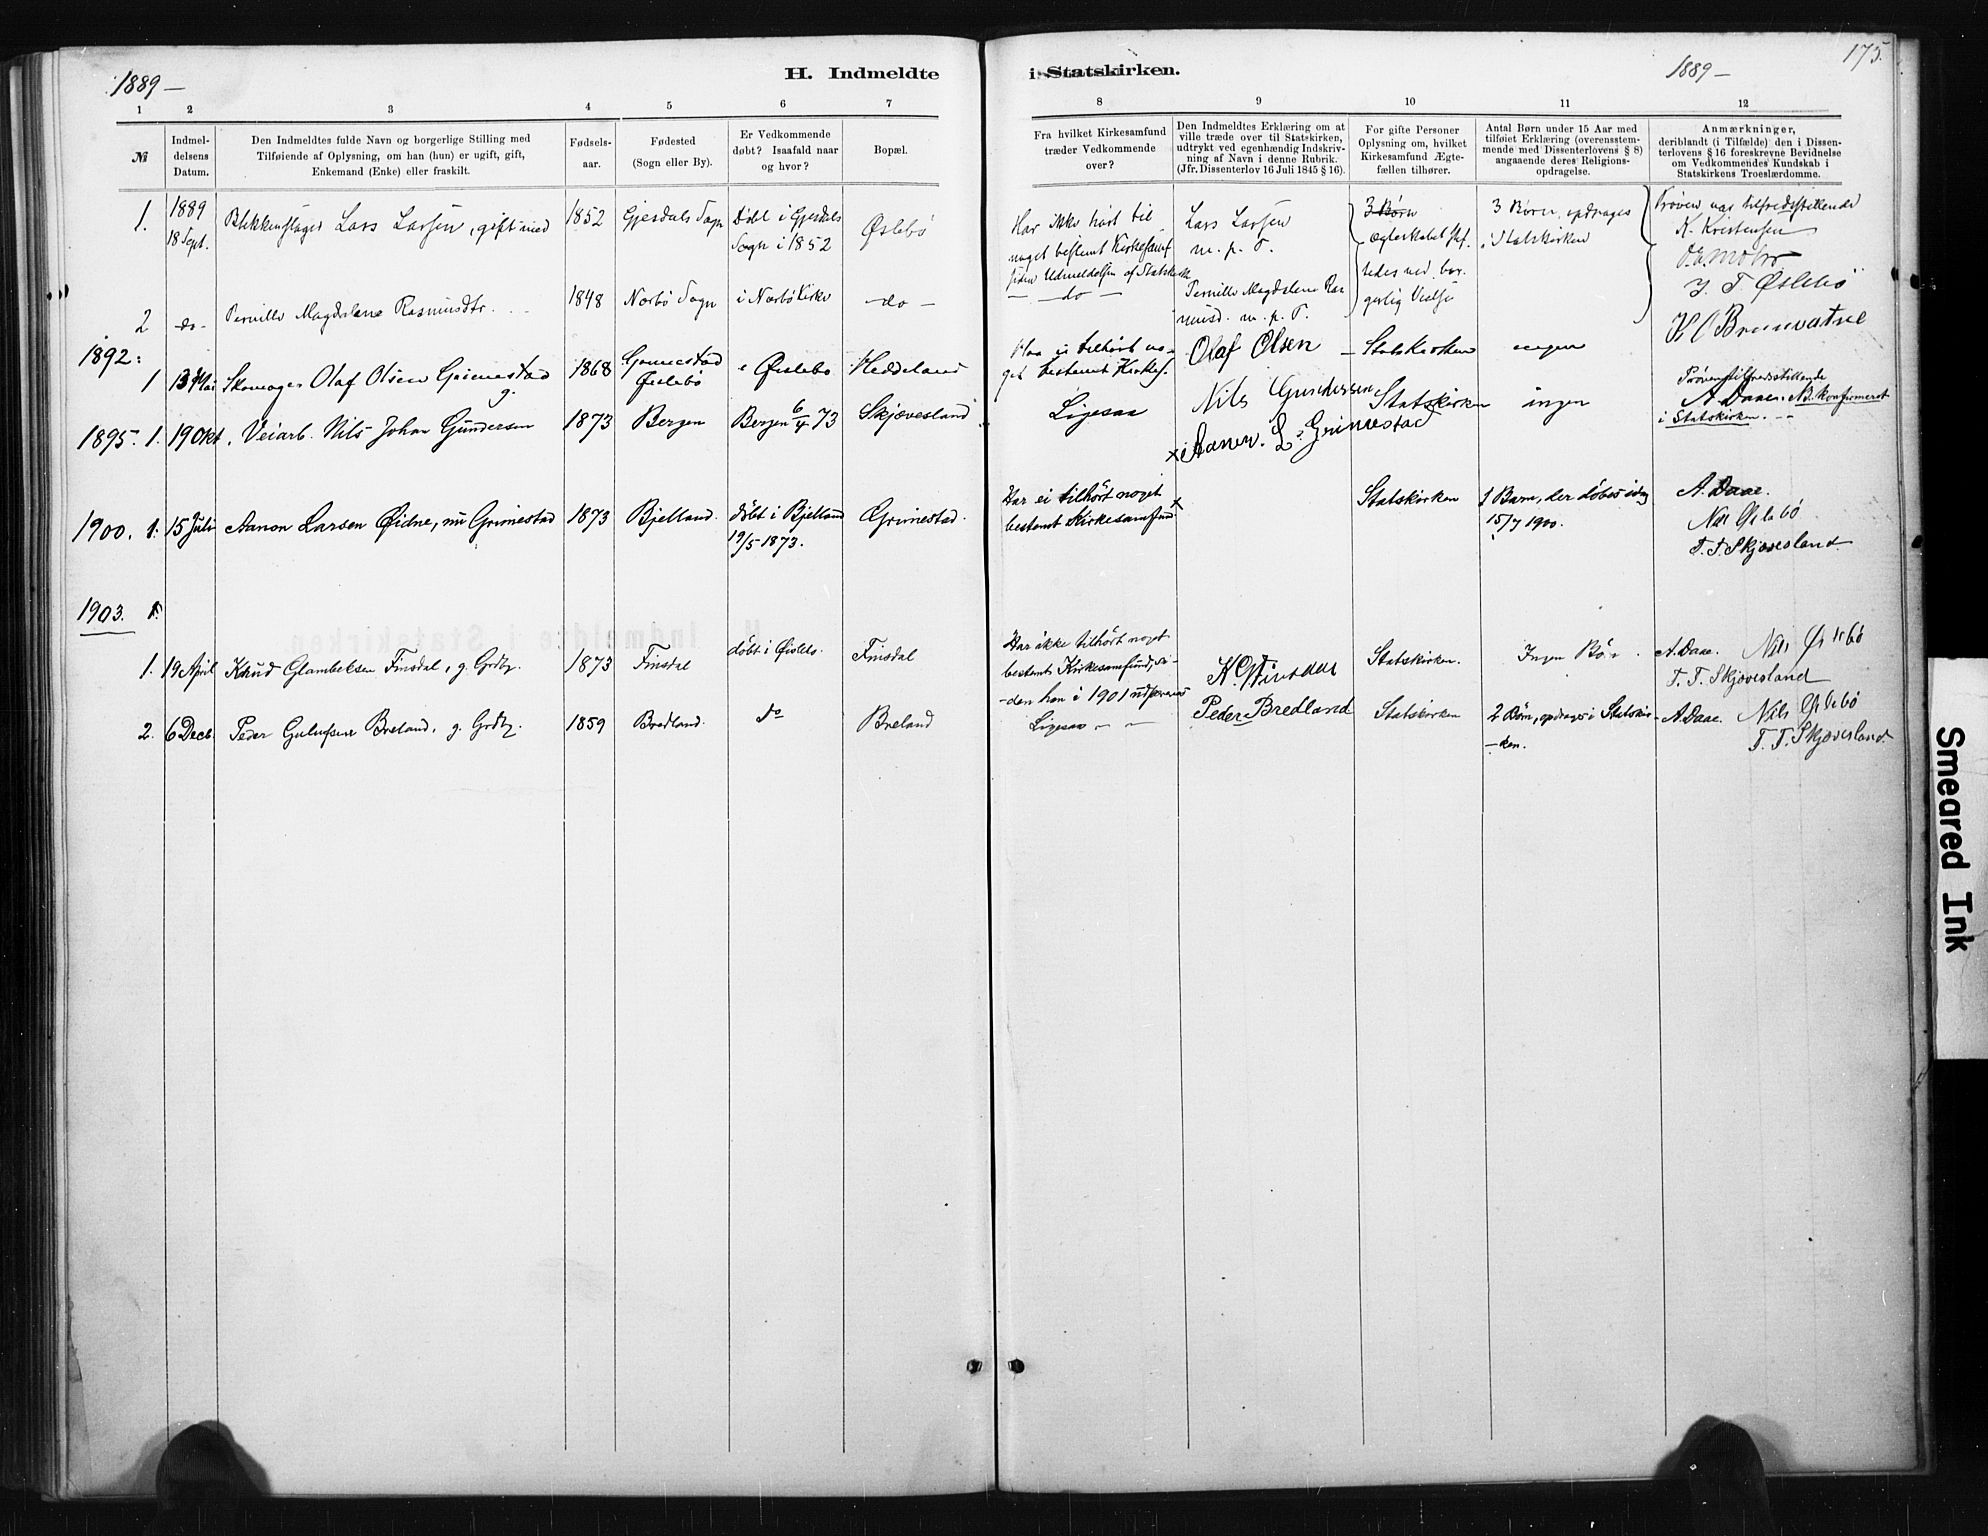 1889 –
H. Indmeldte
i Statskirken.
1889 –
175.
1 2 3 4 5 6 7
8 9 10 11 12
№
Indmel-
delsens
Datum.
Den Indmeldtes fulde Navn og borgerlige Stilling med
Tilføiende af Oplysning, om han (hun) er ugift, gift,
Enkemand (Enke) eller fraskilt.
Fødsels-
aar.
Fødested
(Sogn eller By).
Er Vedkommende
døbt? Isaafald naar
og hvor?
Bopæl.
Fra hvilket Kirkesamfund
træder Vedkommende
over?
Den Indmeldtes Erklæring om at
ville træde over til Statskirken,
udtrykt ved egenhændig Indskriv-
ning af Navn i denne Rubrik.
(Jfr. Dissenterlov 16 Juli 1845 § 16).
For gifte Personer
Oplysning om, hvilket
Kirkesamfund Ægte-
fællen tilhører.
Antal Børn under 15 Aar med
tilføiet Erklæring (overensstem-
mende med Dissenterlovens § 8)
angaaende deres Religions-
opdragelse.
Anmærkninger,
deriblandt (i Tilfælde) den i Dissen-
terlovens § 16 foreskrevne Bevidnelse
om Vedkommendes Kundskab i
Statskirkens Troeslærdomme.
1.
1889
18 Sept.
Blikkenslager Lars Larsen, gift med
1852
Gjesdals Sogn
Døbt i Gjesdals
Sogn i 1852
Øslebø
Har ikke hørt til
noget bestemt Kirkesamf
siden Udmeldelsen af Statskirke
Lars Larsen
m. p. P.
3 Børn
Ægteskabet stif-
tedes ved bor-
gerlig Vielse
3 Børn, opdrages
i Statskirken
Prøven var tilfredsstillende
K. Kristensen
2
do
Pernille Magdalene Rasmusdtr.
1848
Norbø Sogn
i Norbø Kirke
– do –
– do –
Pernille Magdalene Ras
musd. m. p. P.
J. T. Øslebø
K O Brunvatne
1892:
1 13 Mai Skomager Olaf Olsen Grimestad
g.
1868
Grimestad
Øislebø
i Øislebø
Heddeland
Har ei tilhørt no-
get bestemt Kirkes.
Olaf Olsen
– Statskirken
ingen
Prøven tilfredsstillende
A Daae. NB. Konfirmeret
i Statskirken. --
1895. 1. 19 Okt. Veiarb. Nils Johan Gundersen
1873
Bergen
Bergen 6/4 73
Skjævesland
Ligesaa
Nils Gundersen
Statskirken
ingen
x Aanon. L. Grimestad
1900. 1. 15 Juli Aanon Larsen Øidne, nu Grimestad
1873
Bjelland.
døbt i Bjelland
19/5 1873.
Grimestad.
Har ei tilhørt noget
bestemt Kirkesamfund x
Statskirken
1 Barn, der døbes idag
15/7 1900.
A. Daae.
Nils Øslebø
T. T. Skjævesland.
1903.
1. 19 April Knud Glambeksen Finsdal, g. Grdbr.
1873
Finsdal
døbt i Øislebø.
Finsdal
Har ikke tilhørt noget
bestemt Kirkesamfund, si-
-den han i 1901 udtraadte
K G Finsdal
Statskirken.
Ingen Børn.
A. Daae. Nils Øslebø
T. T. Skjævesland
2. 6 Decb. Peder Gulufsen Breland, g. Grdbr.
1859
Bredland.
do
Breland
Ligesaa – –
Peder Bredland
Statskirken
2 Børn, opdrages i Statskir-
-ken.
A. Daae. Nils Øslebø
T. T. Skjævesland.
Smeared Ink